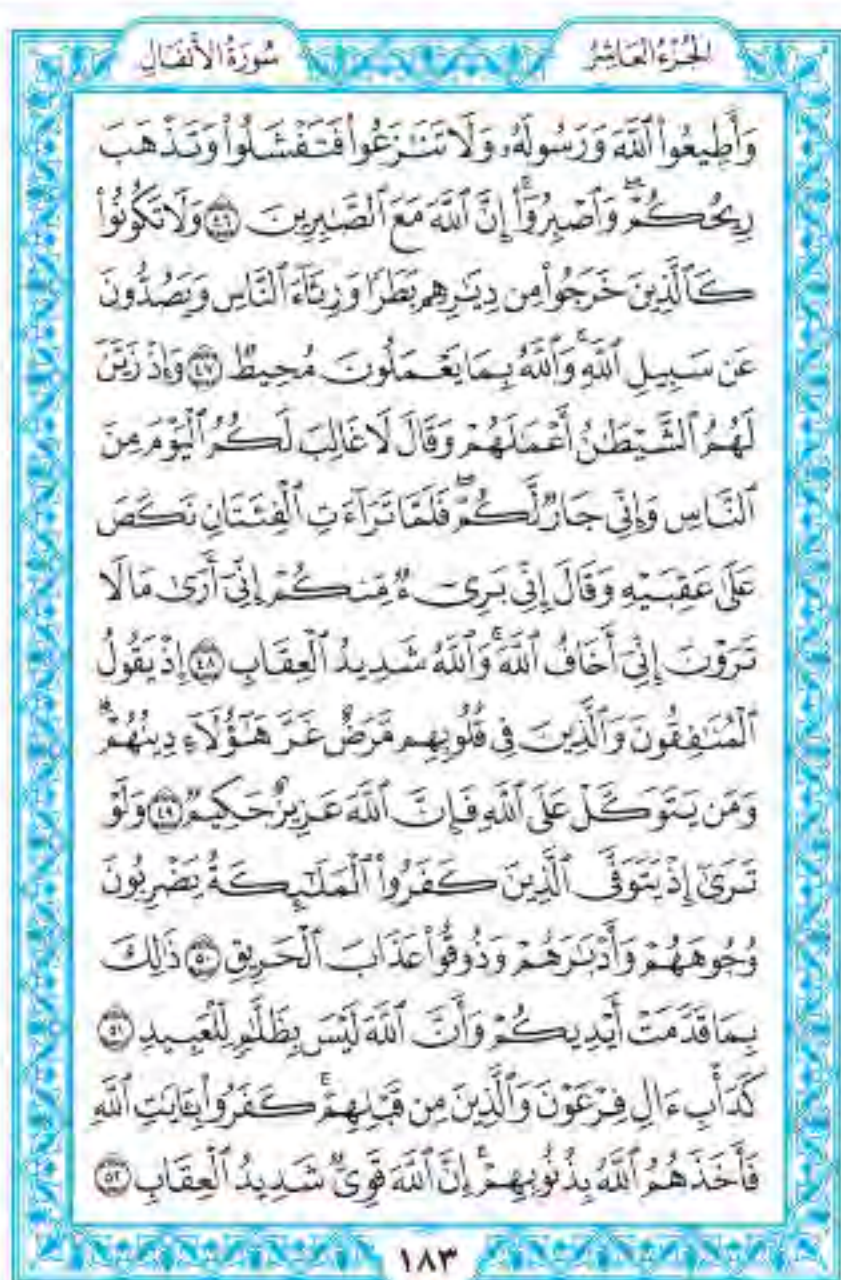 الجُزْءُ العَاشِرُ
سُورَةُ الأَنفَالِ
وَأَطِيعُوا۟ ٱللَّهَ وَرَسُولَهُۥ وَلَا تَنَٰزَعُوا۟ فَتَفْشَلُوا۟ وَتَذْهَبَ
رِيحُكُمْ ۖ وَٱصْبِرُوٓا۟ ۚ إِنَّ ٱللَّهَ مَعَ ٱلصَّٰبِرِينَ ٤٦ وَلَا تَكُونُوا۟
كَٱلَّذِينَ خَرَجُوا۟ مِن دِيَٰرِهِم بَطَرًا وَرِئَآءَ ٱلنَّاسِ وَيَصُدُّونَ
عَن سَبِيلِ ٱللَّهِ ۚ وَٱللَّهُ بِمَا يَعْمَلُونَ مُحِيطٌ ٤٧ وَإِذْ زَيَّنَ
لَهُمُ ٱلشَّيْطَٰنُ أَعْمَٰلَهُمْ وَقَالَ لَا غَالِبَ لَكُمُ ٱلْيَوْمَ مِنَ
ٱلنَّاسِ وَإِنِّى جَارٌ لَّكُمْ ۖ فَلَمَّا تَرَآءَتِ ٱلْفِئَتَانِ نَكَصَ
عَلَىٰ عَقِبَيْهِ وَقَالَ إِنِّى بَرِىٓءٌ مِّنكُمْ إِنِّىٓ أَرَىٰ مَا لَا
تَرَوْنَ إِنِّىٓ أَخَافُ ٱللَّهَ ۚ وَٱللَّهُ شَدِيدُ ٱلْعِقَابِ ٤٨ إِذْ يَقُولُ
ٱلْمُنَٰفِقُونَ وَٱلَّذِينَ فِى قُلُوبِهِم مَّرَضٌ غَرَّ هَٰٓؤُلَآءِ دِينُهُمْ ۗ
وَمَن يَتَوَكَّلْ عَلَى ٱللَّهِ فَإِنَّ ٱللَّهَ عَزِيزٌ حَكِيمٌ ٤٩ وَلَوْ
تَرَىٰٓ إِذْ يَتَوَفَّى ٱلَّذِينَ كَفَرُوا۟ ٱلْمَلَٰٓئِكَةُ يَضْرِبُونَ
وُجُوهَهُمْ وَأَدْبَٰرَهُمْ وَذُوقُوا۟ عَذَابَ ٱلْحَرِيقِ ٥٠ ذَٰلِكَ
بِمَا قَدَّمَتْ أَيْدِيكُمْ وَأَنَّ ٱللَّهَ لَيْسَ بِظَلَّٰمٍ لِّلْعَبِيدِ ٥١
كَدَأْبِ ءَالِ فِرْعَوْنَ وَٱلَّذِينَ مِن قَبْلِهِمْ ۚ كَفَرُوا۟ بِـَٔايَٰتِ ٱللَّهِ
فَأَخَذَهُمُ ٱللَّهُ بِذُنُوبِهِمْ ۗ إِنَّ ٱللَّهَ قَوِىٌّ شَدِيدُ ٱلْعِقَابِ ٥٢
١٨٣